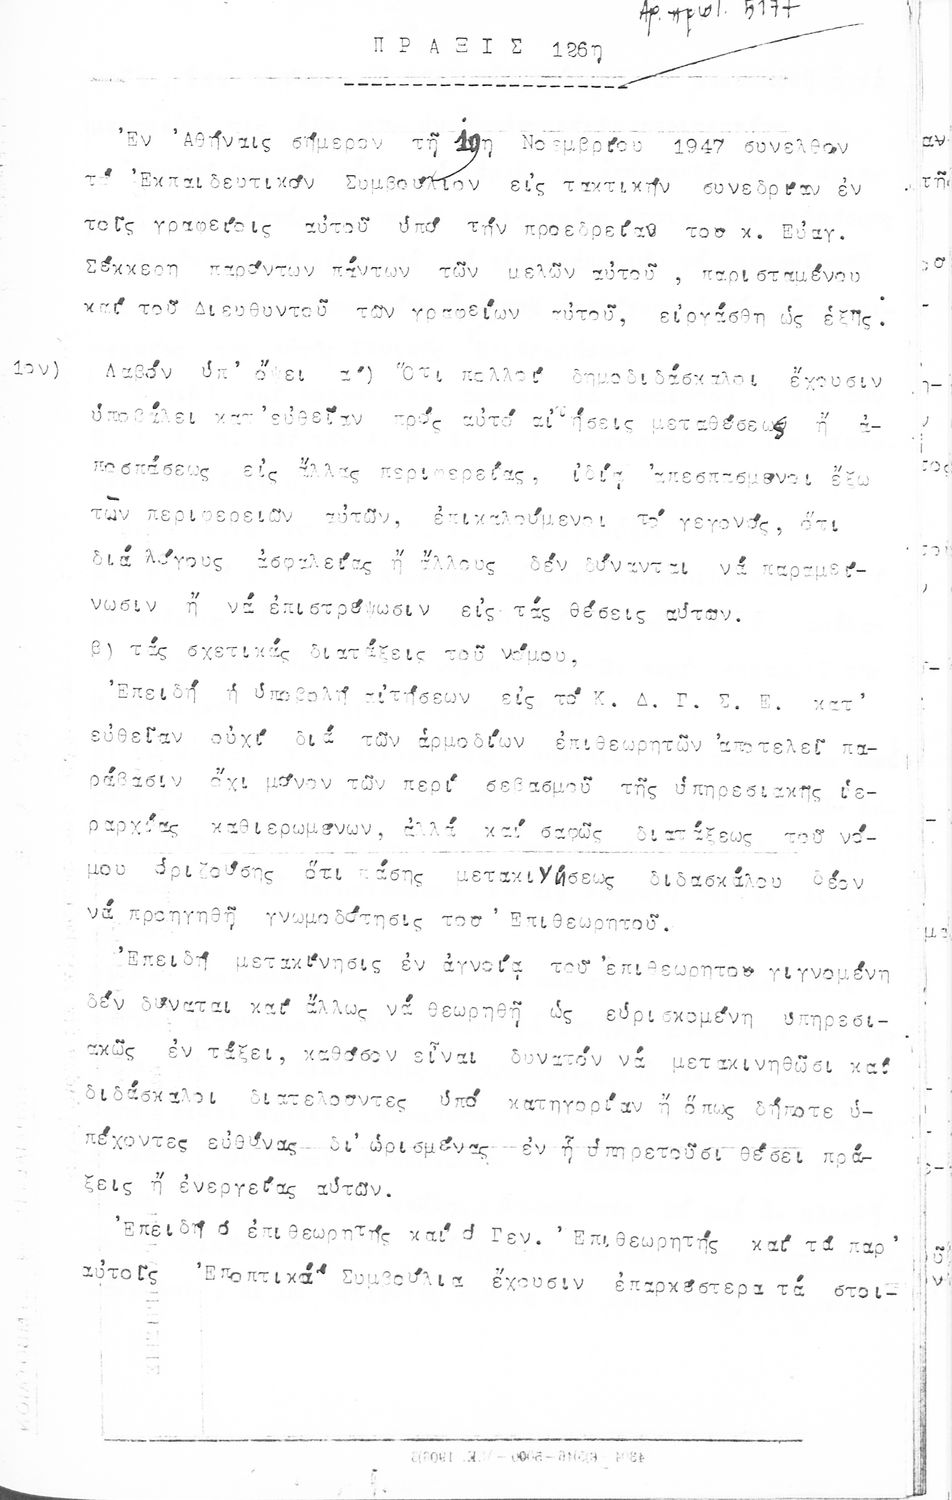 Ἀρ. πρωτ. 5177
Π Ρ Α Ξ Ι Σ 126η
Ἐν Ἀθήναις σήμερον τῇ 19η Νοεμβρίου 1947 συνελθόν
τό Ἐκπαιδευτικόν Συμβούλιον εἰς τακτικήν συνεδρίαν ἐν
τοῖς γραφείοις αὐτοῦ ὑπό τήν προεδρείαν του κ. Εὐαγ.
Σέκκερη παρόντων πάντων τῶν μελῶν αὐτοῦ , παρισταμένου
καί τοῦ Διευθυντοῦ τῶν γραφείων αὐτοῦ, εἰργάσθη ὡς ἑξῆς.
1ον) Λαβόν ὑπ' ὄψει α') Ὅτι πολλοί δημοδιδάσκαλοι ἔχουσιν
ὑποβάλει κατ'εὐθεῖαν πρός αὐτό αἰτήσεις μεταθέσεως ἤ ἀ-
ποσπάσεως εἰς ἄλλας περιφερείας, ἰδίᾳ ἀπεσπασμένοι ἔξω
τῶν περιφερειῶν αὐτῶν, ἐπικαλούμενοι τό γεγονός, ὅτι
διά λόγους ἀσφαλείας ἤ ἄλλους δέν δύνανται νά παραμεί-
νωσιν ἤ νά ἐπιστρέψωσιν εἰς τάς θέσεις αὐτων.
β) τάς σχετικάς διατάξεις τοῦ νόμου,
Ἐπειδή ἡ ὑποβολή αἰτήσεων εἰς τό Κ. Δ. Γ. Σ. Ε. κατ'
εὐθεῖαν οὐχί διά τῶν ἁρμοδίων ἐπιθεωρητῶν ἀποτελεῖ πα-
ράβασιν ὄχι μόνον τῶν περί σεβασμοῦ τῆς ὑπηρεσιακῆς ἱε-
ραρχίας καθιερωμένων, ἀλλά καί σαφῶς διατάξεως τοῦ νό-
μου ὁριζούσης ὅτι πάσης μετακινήσεως διδασκάλου δέον
νά προηγηθῇ γνωμοδότησις του Ἐπιθεωρητοῦ.
Ἐπειδή μετακίνησις ἐν ἀγνοίᾳ τοῦ ἐπιθεωρητου γιγνομένη
δέν δύναται καί ἄλλως νά θεωρηθῇ ὡς εὑρισκομένη υπηρεσι-
ακῶς ἐν τάξει, καθόσον εἶναι δυνατόν νά μετακινηθῶσι καί
διδάσκαλοι διατελοῦντες ὑπό κατηγορίαν ἤ ὅπως δήποτε ὑ-
πέχοντες εὐθύνας δι' ὡρισμένας ἐν ᾗ ὑπηρετοῦσι θέσει πρά-
ξεις ἤ ἐνεργείας αὐτῶν.
Ἐπειδή ὁ ἐπιθεωρητής καί ὁ Γεν. Ἐπιθεωρητής καί τά παρ'
αὐτοῖς Ἐποπτικά Συμβούλια ἔχουσιν ἐπαρκέστερα τά στοι-